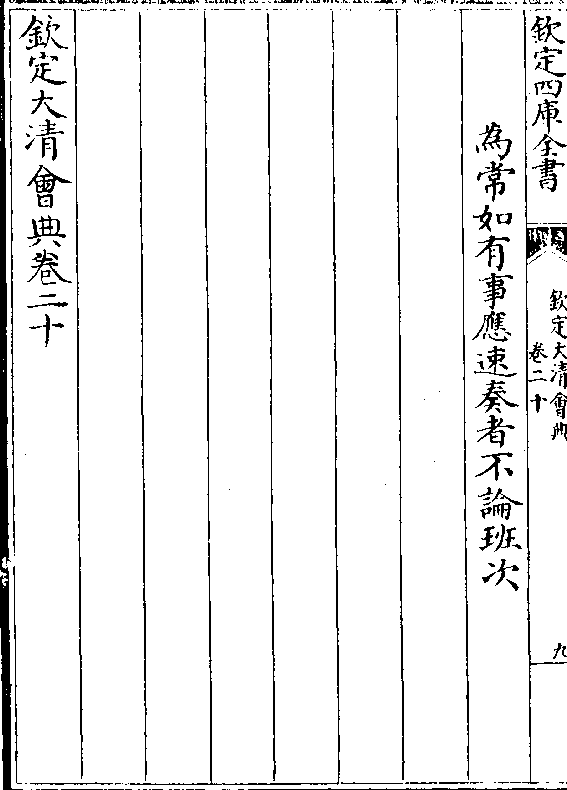 欽定四庫全書
欽定大清會典
卷二十
九
為常如有事應速奏者不論班次
欽定大清會典卷二十